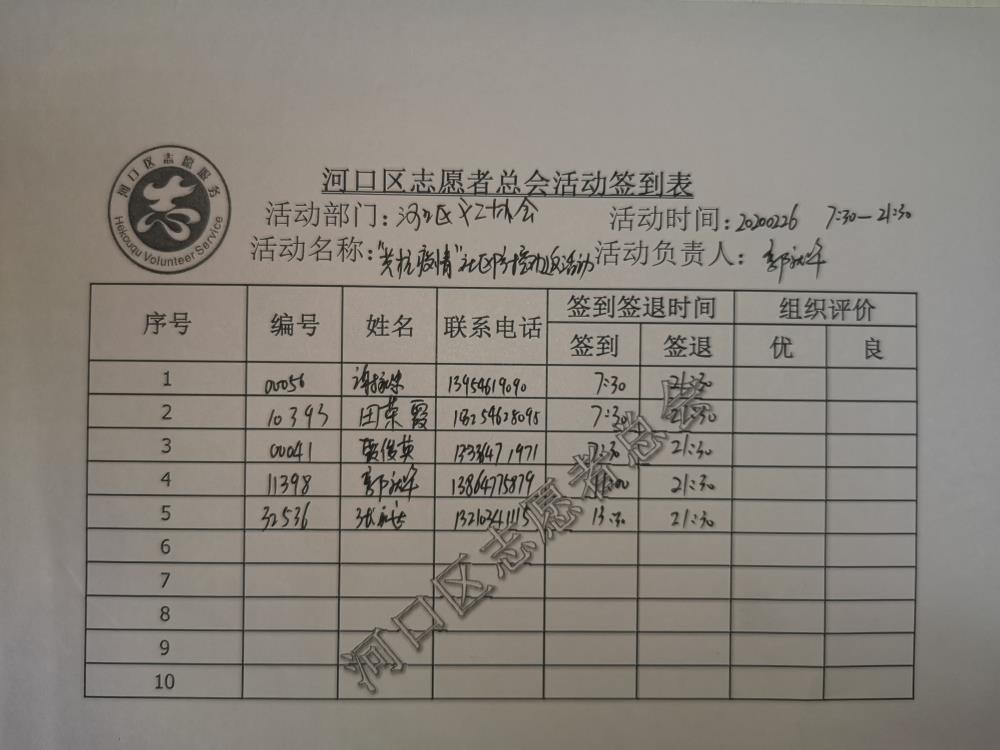 河口区志愿服务
Hekouqu Volunteer Service
河口区志愿者总会活动签到表
活动部门：河口区义工协会 活动时间：20200226 7:30—21:30
活动名称："共抗疫情"社区 活动 活动负责人：郭
序号 编号 姓名 联系电话 签到签退时间 组织评价
签到 签退 优 良
1 00056 13954619090 7:30 21:30
2 10393 田荣霞 18254628095 7:30 21:30
3 00041 俊英 1333647 1971 7:30 21:30
4 11398 郭 13864775879 11:00 21:30
5 32536 张 13210341115 13:30 21:30
6
7
8
9
10
河口区志愿者总会